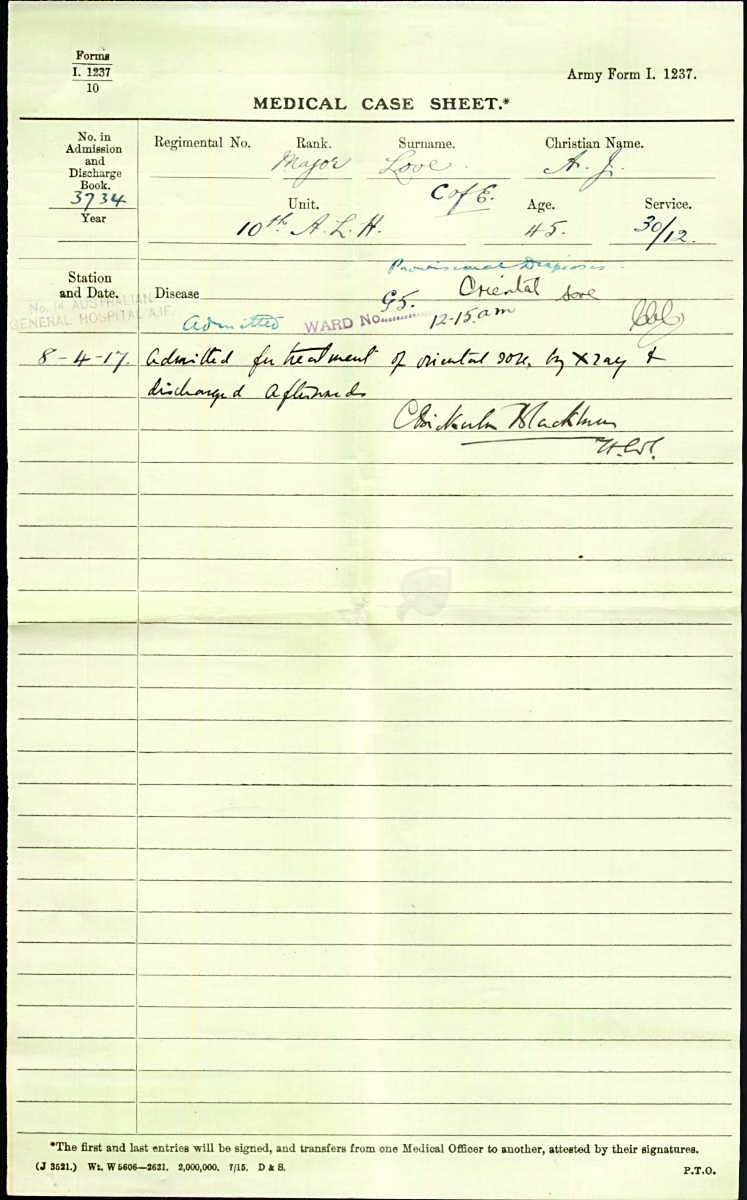 Forms
I. 1237
10
Army Form I. 1237.
MEDICAL CASE SHEET.*
No. in Admission and Discharge Book.
3734
Year
Regimental No. Rank. Surname. Christian Name.
Major Love. A. J.
C of E.
Unit. Age. Service.
10th A. L. H. 45. 30/12.
Station and Date.
No. 14 AUSTRALIAN
GENERAL HOSPITAL A.I.F.
Provisional Diagnosis.
Disease G5. Oriental sore
Admitted WARD No. 12-15.am
8-4-17. Admitted for treatment of oriental sore, by X ray &
discharged afterwards
Blackburn
*The first and last entries will be signed, and transfers from one Medical Officer to another, attested by their signatures.
(J 3521.) Wt. W 5606—2631. 2,000,000. 7/15. D & S.
P.T.O.